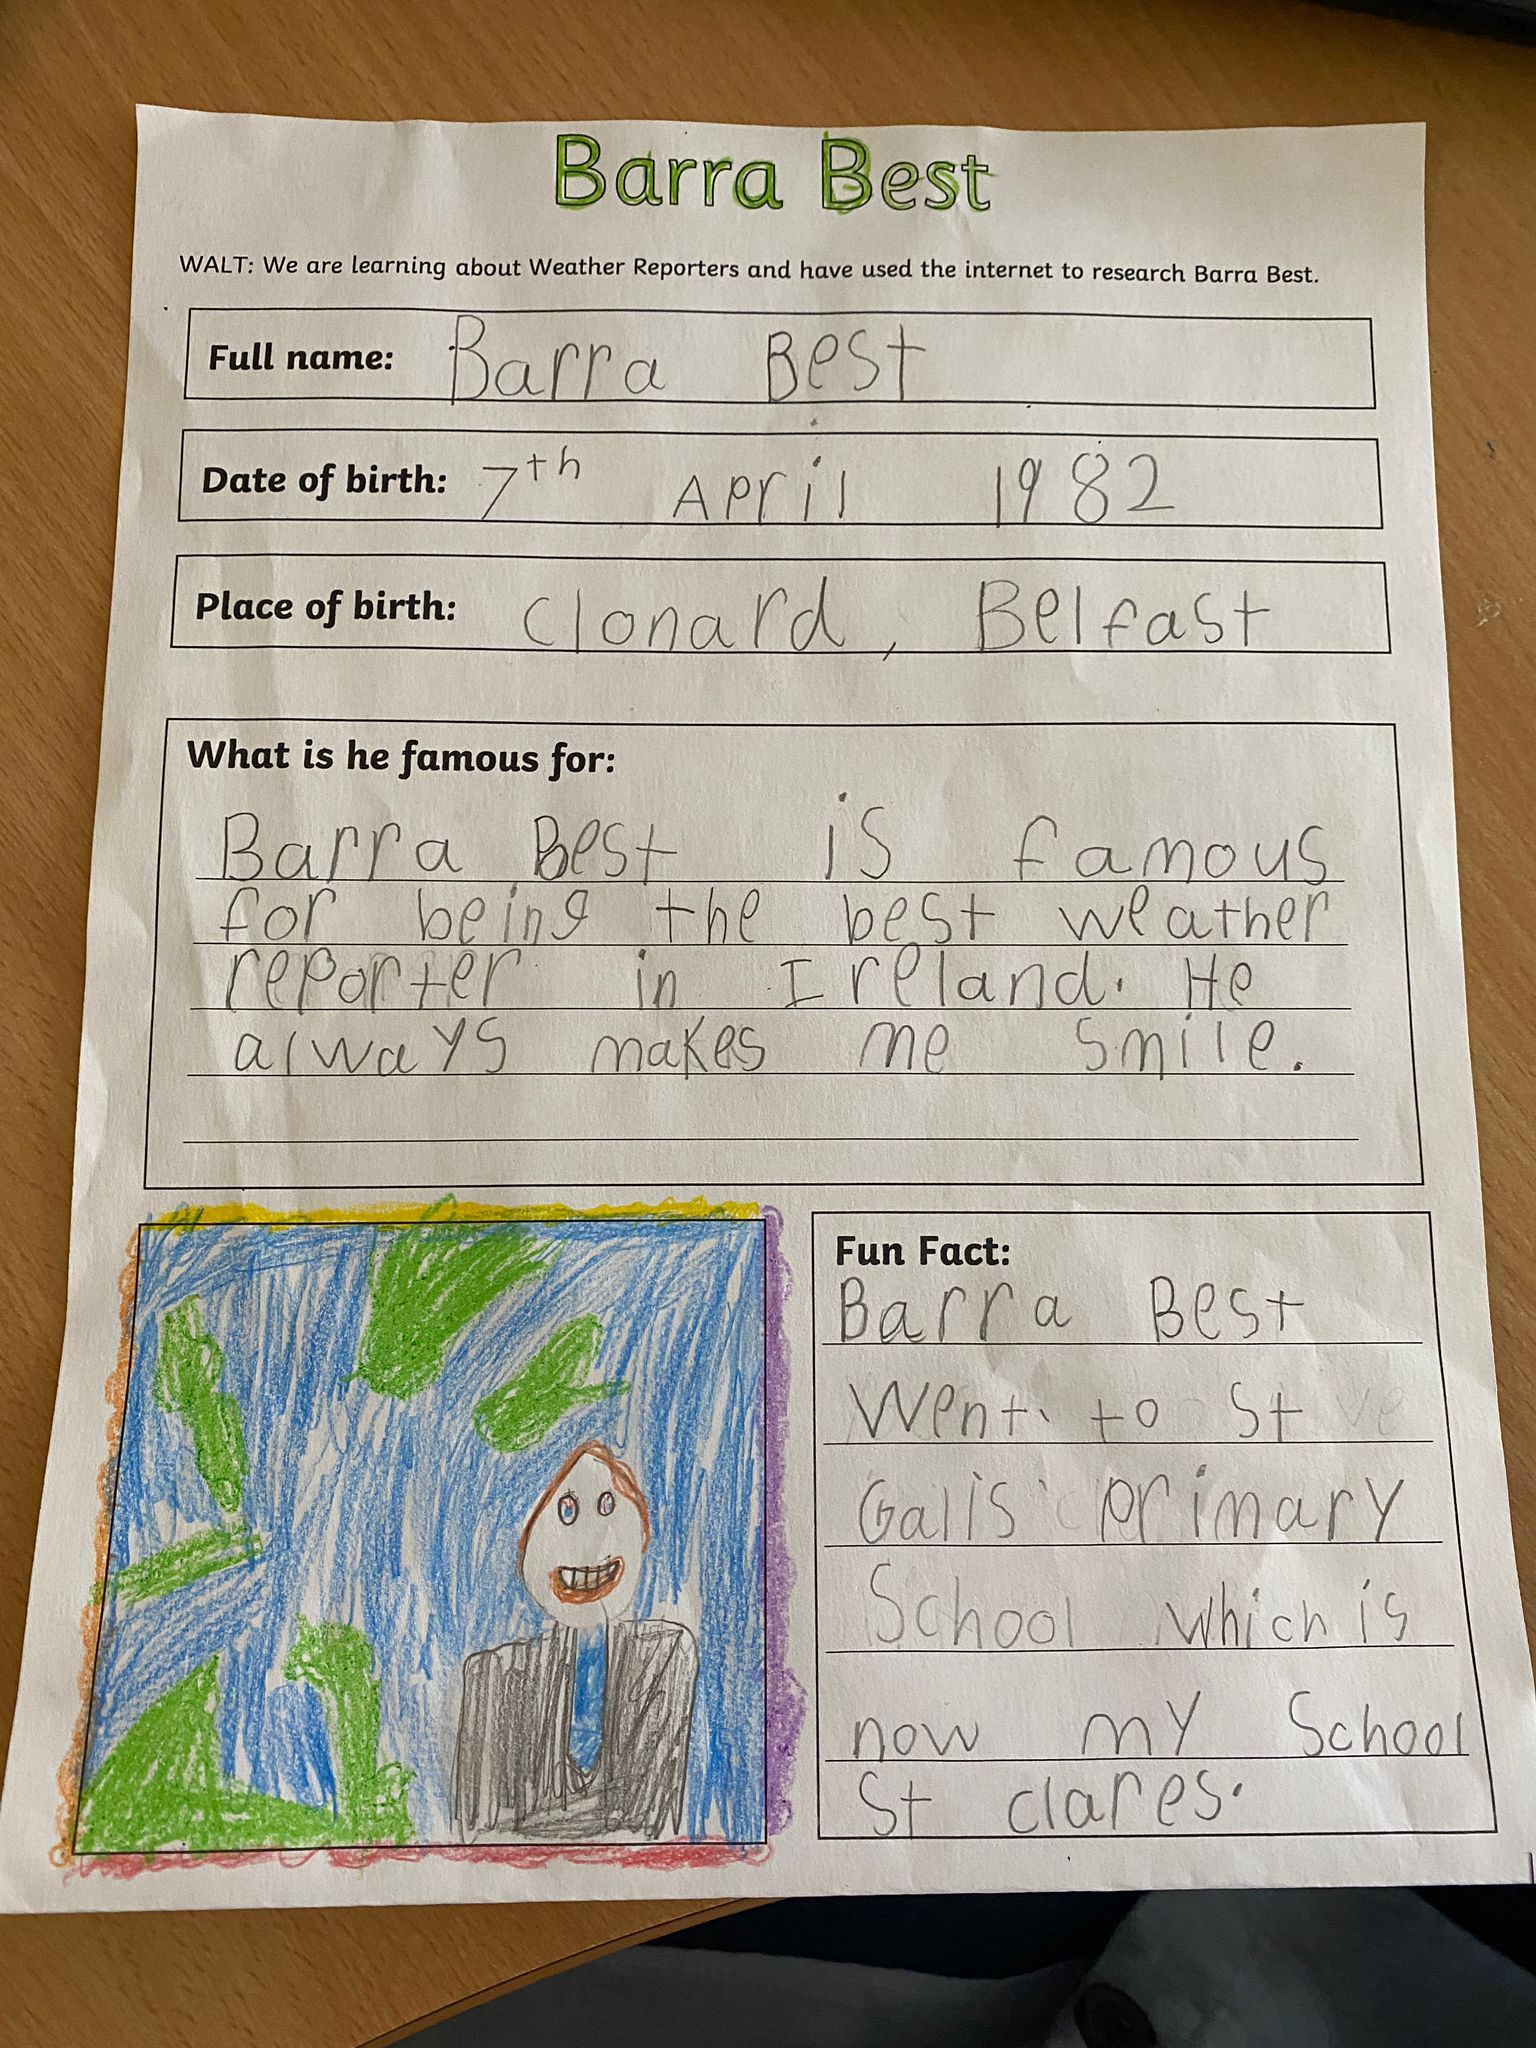 Barra Best
WALT: We are learning about Weather Reporters and have used the internet to research Barra Best.
Full name: Barra Best
Date of birth: 7th April 1982
Place of birth: Clonard, Belfast
What is he famous for:
Barra Best is famous
for being the best weather
reporter in Ireland. He
always makes me smile.
Fun Fact:
Barra Best
went to St
Galls primary
School which is
now my School
St clares.